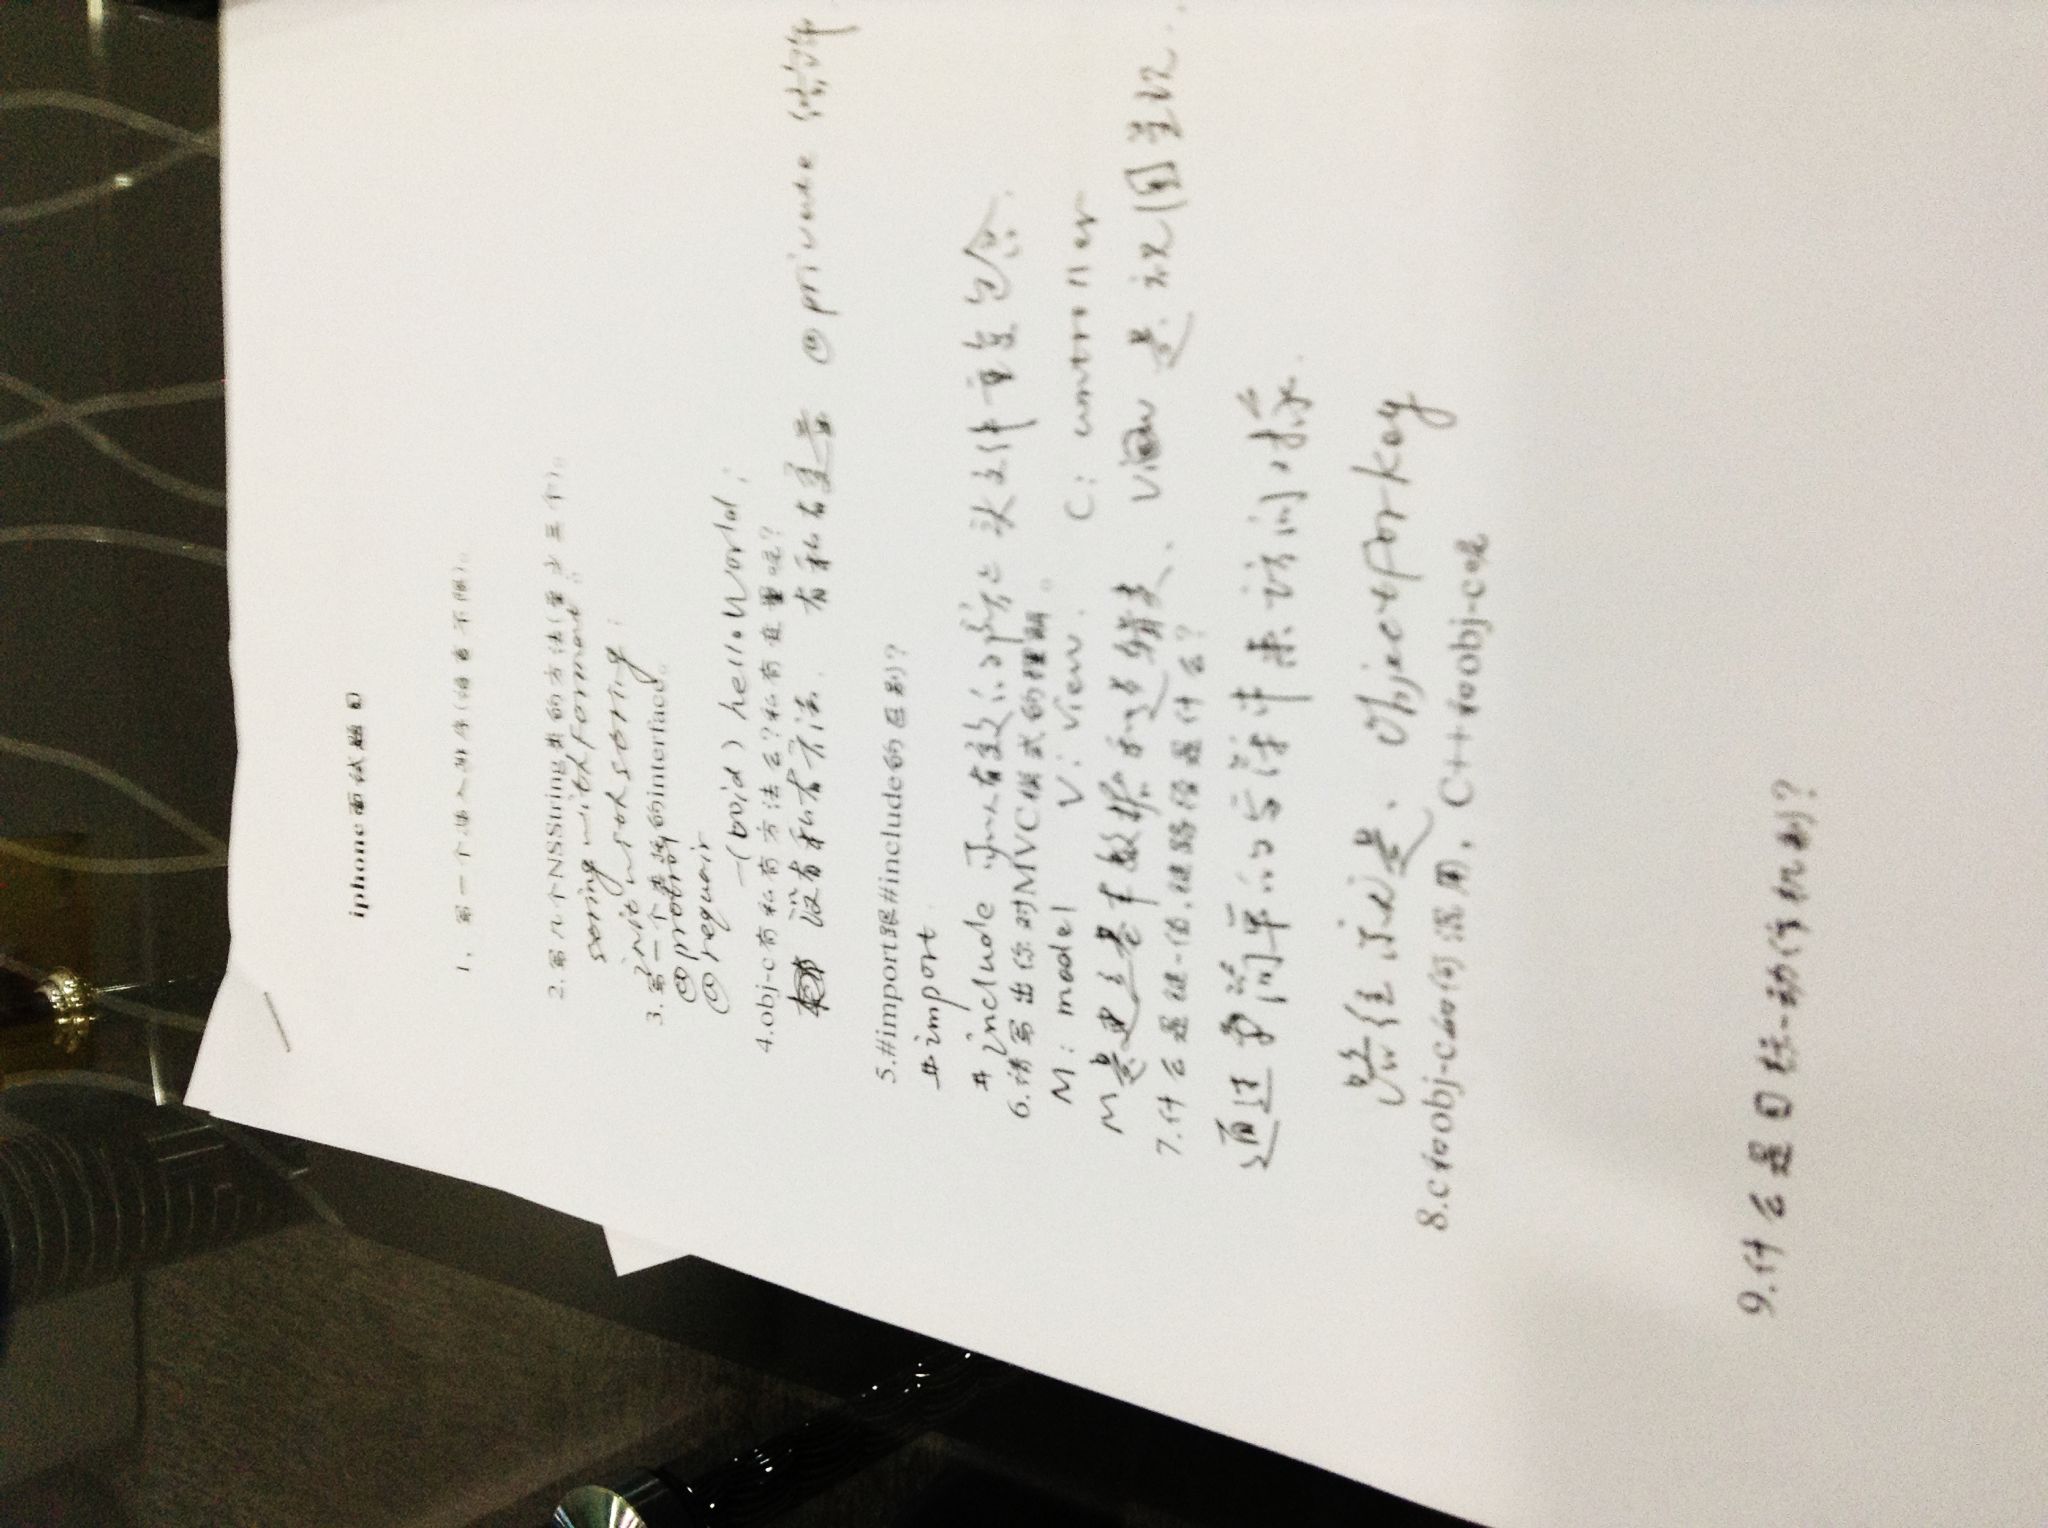 iphone面试题目
1、写一个插入排序(语言不限)。
2.写几个NSString类的方法(至少三个)。
string with Format:
init with string:
3.写一个类或的interface。
@protocol
@requir
-(void) helloWorld;
4.obj-c有私有方法么?私有变量呢?
没有私有方法. 有私有变量 @private 修饰
5.#import跟#include的区别?
#import
#include 可以有效的防止头文件重复包含.
6.请写出你对MVC模式的理解。
M: model V: View. C: controller
M是 数据 View 是 视图
7.什么是键-值,键路径是什么?
通过 简单的字符串来访问对象.
路径 是. objectforkey
8.c和obj-c如何混用, C++和obj-c呢
9.什么是目标-动作机制?